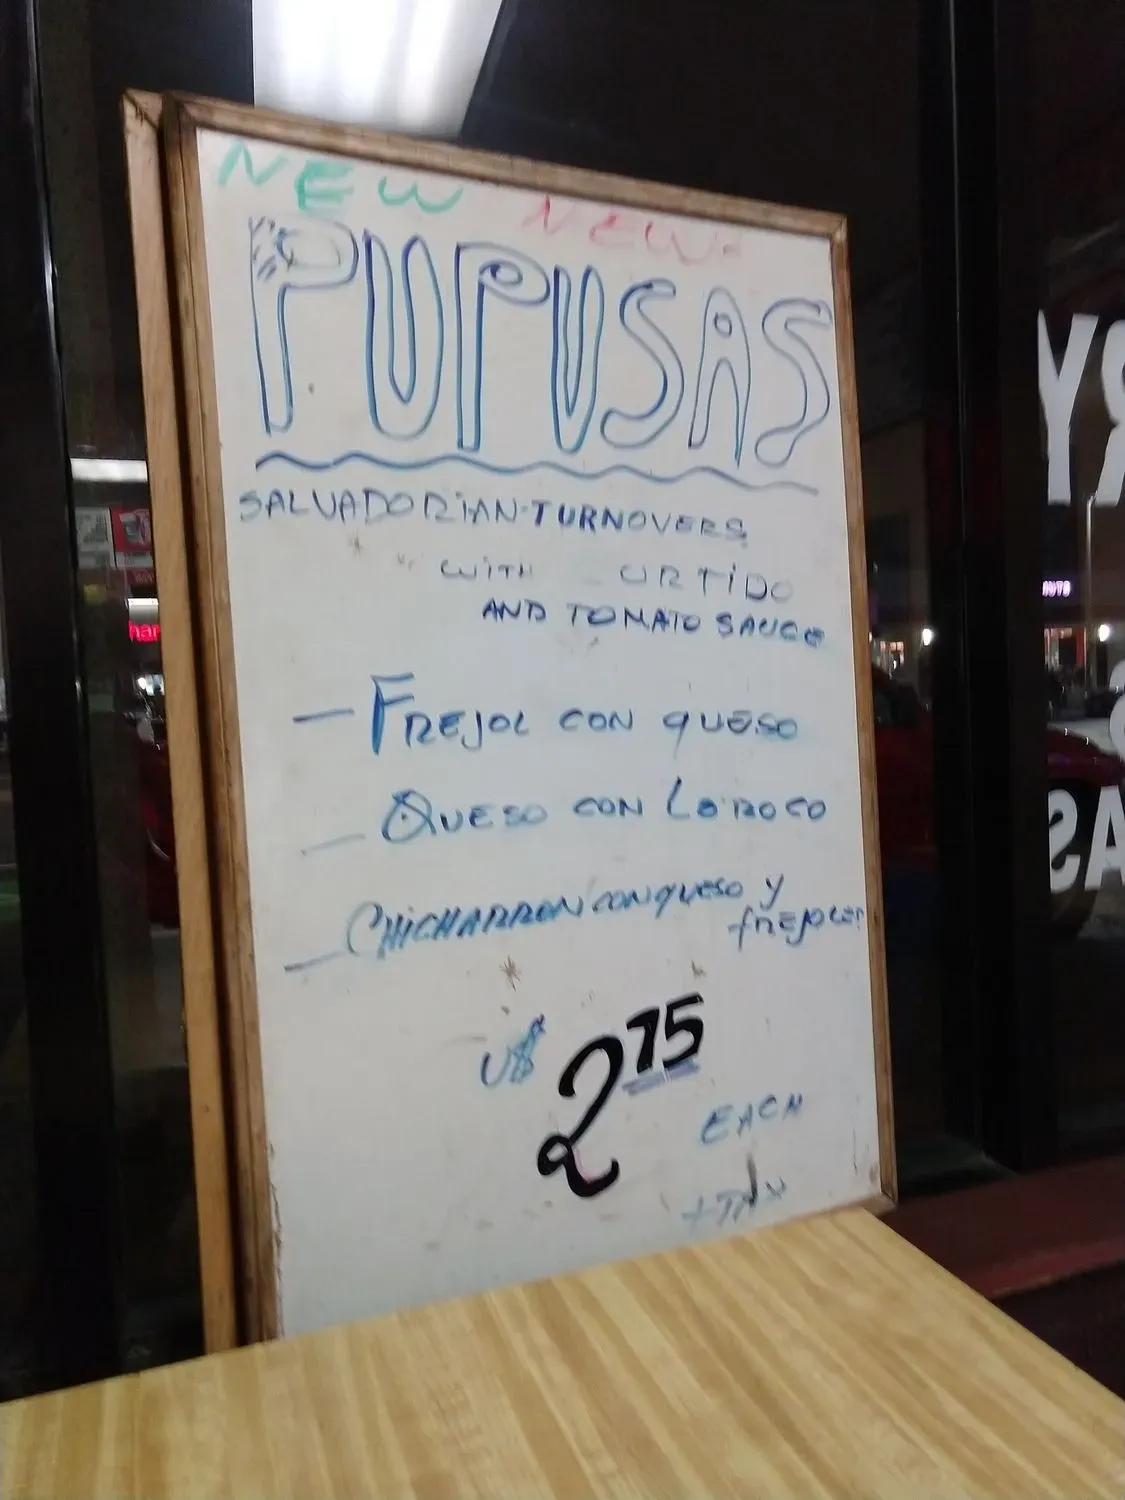 NEW NEW
PUPUSAS
SALVADORIAN-TURNOVERS
WITH CURTIDO
AND TOMATO SAUCE
— FREJOL CON QUESO
— QUESO CON LOROCO
— CHICHARRON CON QUESO Y
FREJOLES
U$ 2 75
EACH
+ TAX
RY
AS
AUTO